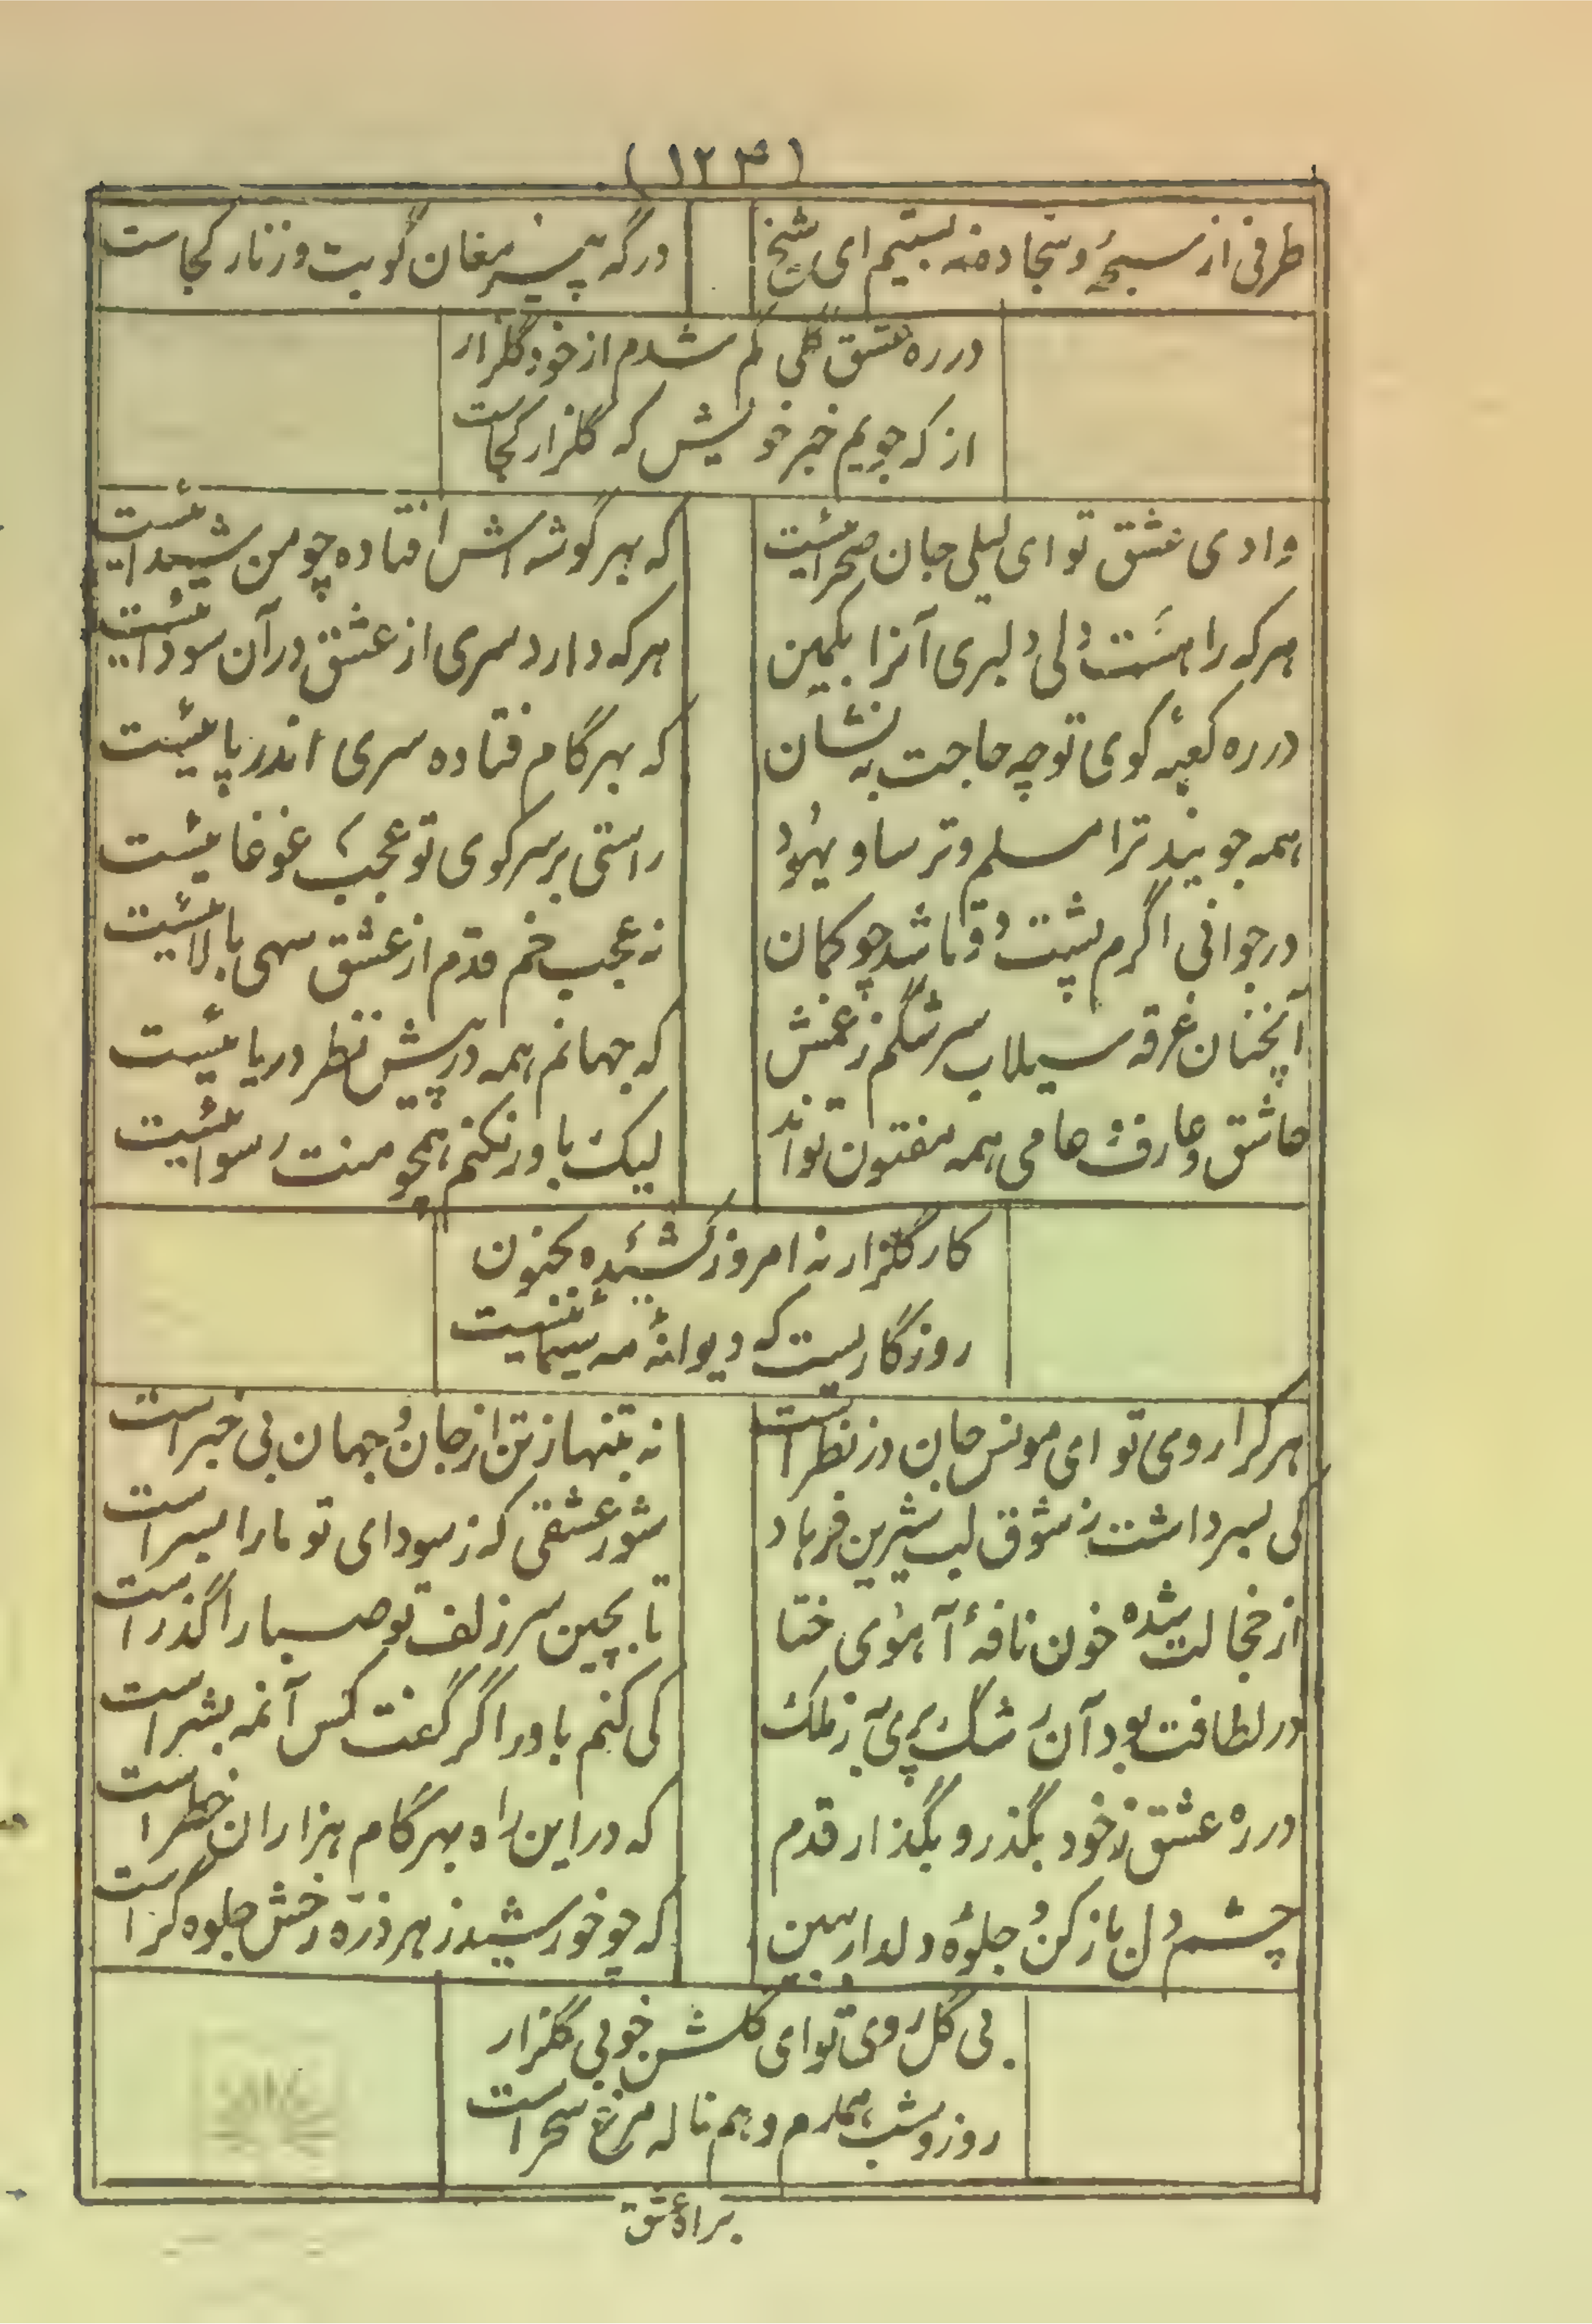 (۱۲۳)
طرفی از سبحهٔ و سجاده نه بستیم ای شیخ
درگه پیر مغان گو بت و زنار کجاست
در ره عشق گلی گم شدم از خود گلزار
از که جویم خبر خویش که گلزار کجاست
وادی عشق تو ای لیلی جان صحرائیست
که بهر گوشه اش افتاده چو من شیدائیست
هر که را هست دلی دلبری آنرا بکمین
هر که دارد سری از عشق در آن سودائیست
در ره کعبهٔ کوی تو چه حاجت به نشان
که بهر گام فتاده سری اندر پائیست
همه جویند ترا مسلم و ترسا و یهود
راستی بر سر کوی تو عجب غوغائیست
در جوانی اگرم پشت دوتا شد چو کمان
نه عجب خم قدم از عشق سهی بالائیست
آنچنان غرقه سیلاب سرشگم ز غمش
که جهانم همه در پیش نظر دریائیست
عاشق و عارف و عامی همه مفتون تواند
لیک باور نکنم همچو منت رسوائیست
کار گلزار نه امروز کشیده بجنون
روزگاریست که دیوانهٔ مه سیمائیست
هر کرا روی تو ای مونس جان در نظر است
نه بتنها ز تن از جان و جهان بی خبر است
کی بسر داشت ز شوق لب شیرین فرهاد
شور عشقی که ز سودای تو ما را بسر است
از خجالت شده خون نافهٔ آهوی ختا
تا بچین سر زلف تو صبا را گذر است
در لطافت بود آن رشگ پری به ز ملک
کی کنم باور اگر گفت کس آنمه بشر است
در ره عشق ز خود بگذر و بگذار قدم
که در این راه بهر گام هزاران خطر است
چشم دل باز کن و جلوهٔ دلدار ببین
که چو خورشید ز هر ذره رخش جلوه گر است
بی گل روی تو ای گلشن خوبی گلزار
روز و شب همدم و هم ناله مرغ سحر است
براه عشق